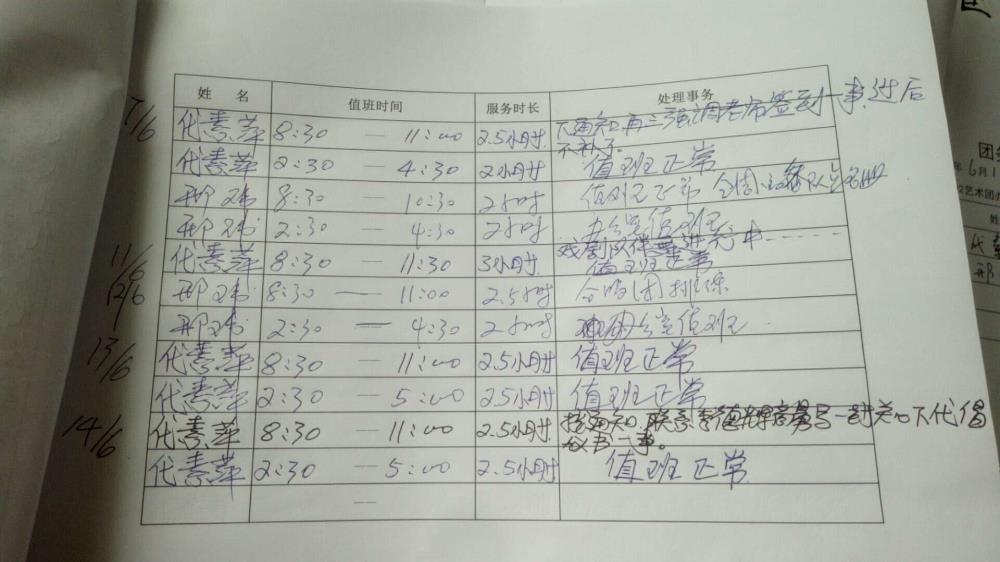 姓 名 值班时间 服务时长 处理事务
7/6 代素萍 8:30 — 11:00 2.5小时 下通知,再三强调老师签到一事,过后
不补了。
代素萍 2:30 — 4:30 2小时 值班正常
邢 8:30 — 10:30 2小时 值班正常
邢 2:30 — 4:30 2小时 办公室值班
11/6 代素萍 8:30 — 11:30 3小时 值班正常
12/6 邢 8:30 — 11:00 2.5小时 合唱(团)排练
邢 2:30 — 4:30 2小时 办公室值班
13/6 代素萍 8:30 — 11:00 2.5小时 值班正常
代素萍 2:30 — 5:00 2.5小时 值班正常
14/6 代素萍 8:30 — 11:00 2.5小时 接通知,联系
议书一事。
代素萍 2:30 — 5:00 2.5小时 值班正常
—
团
年6月1
艺术团
姓
代
邢